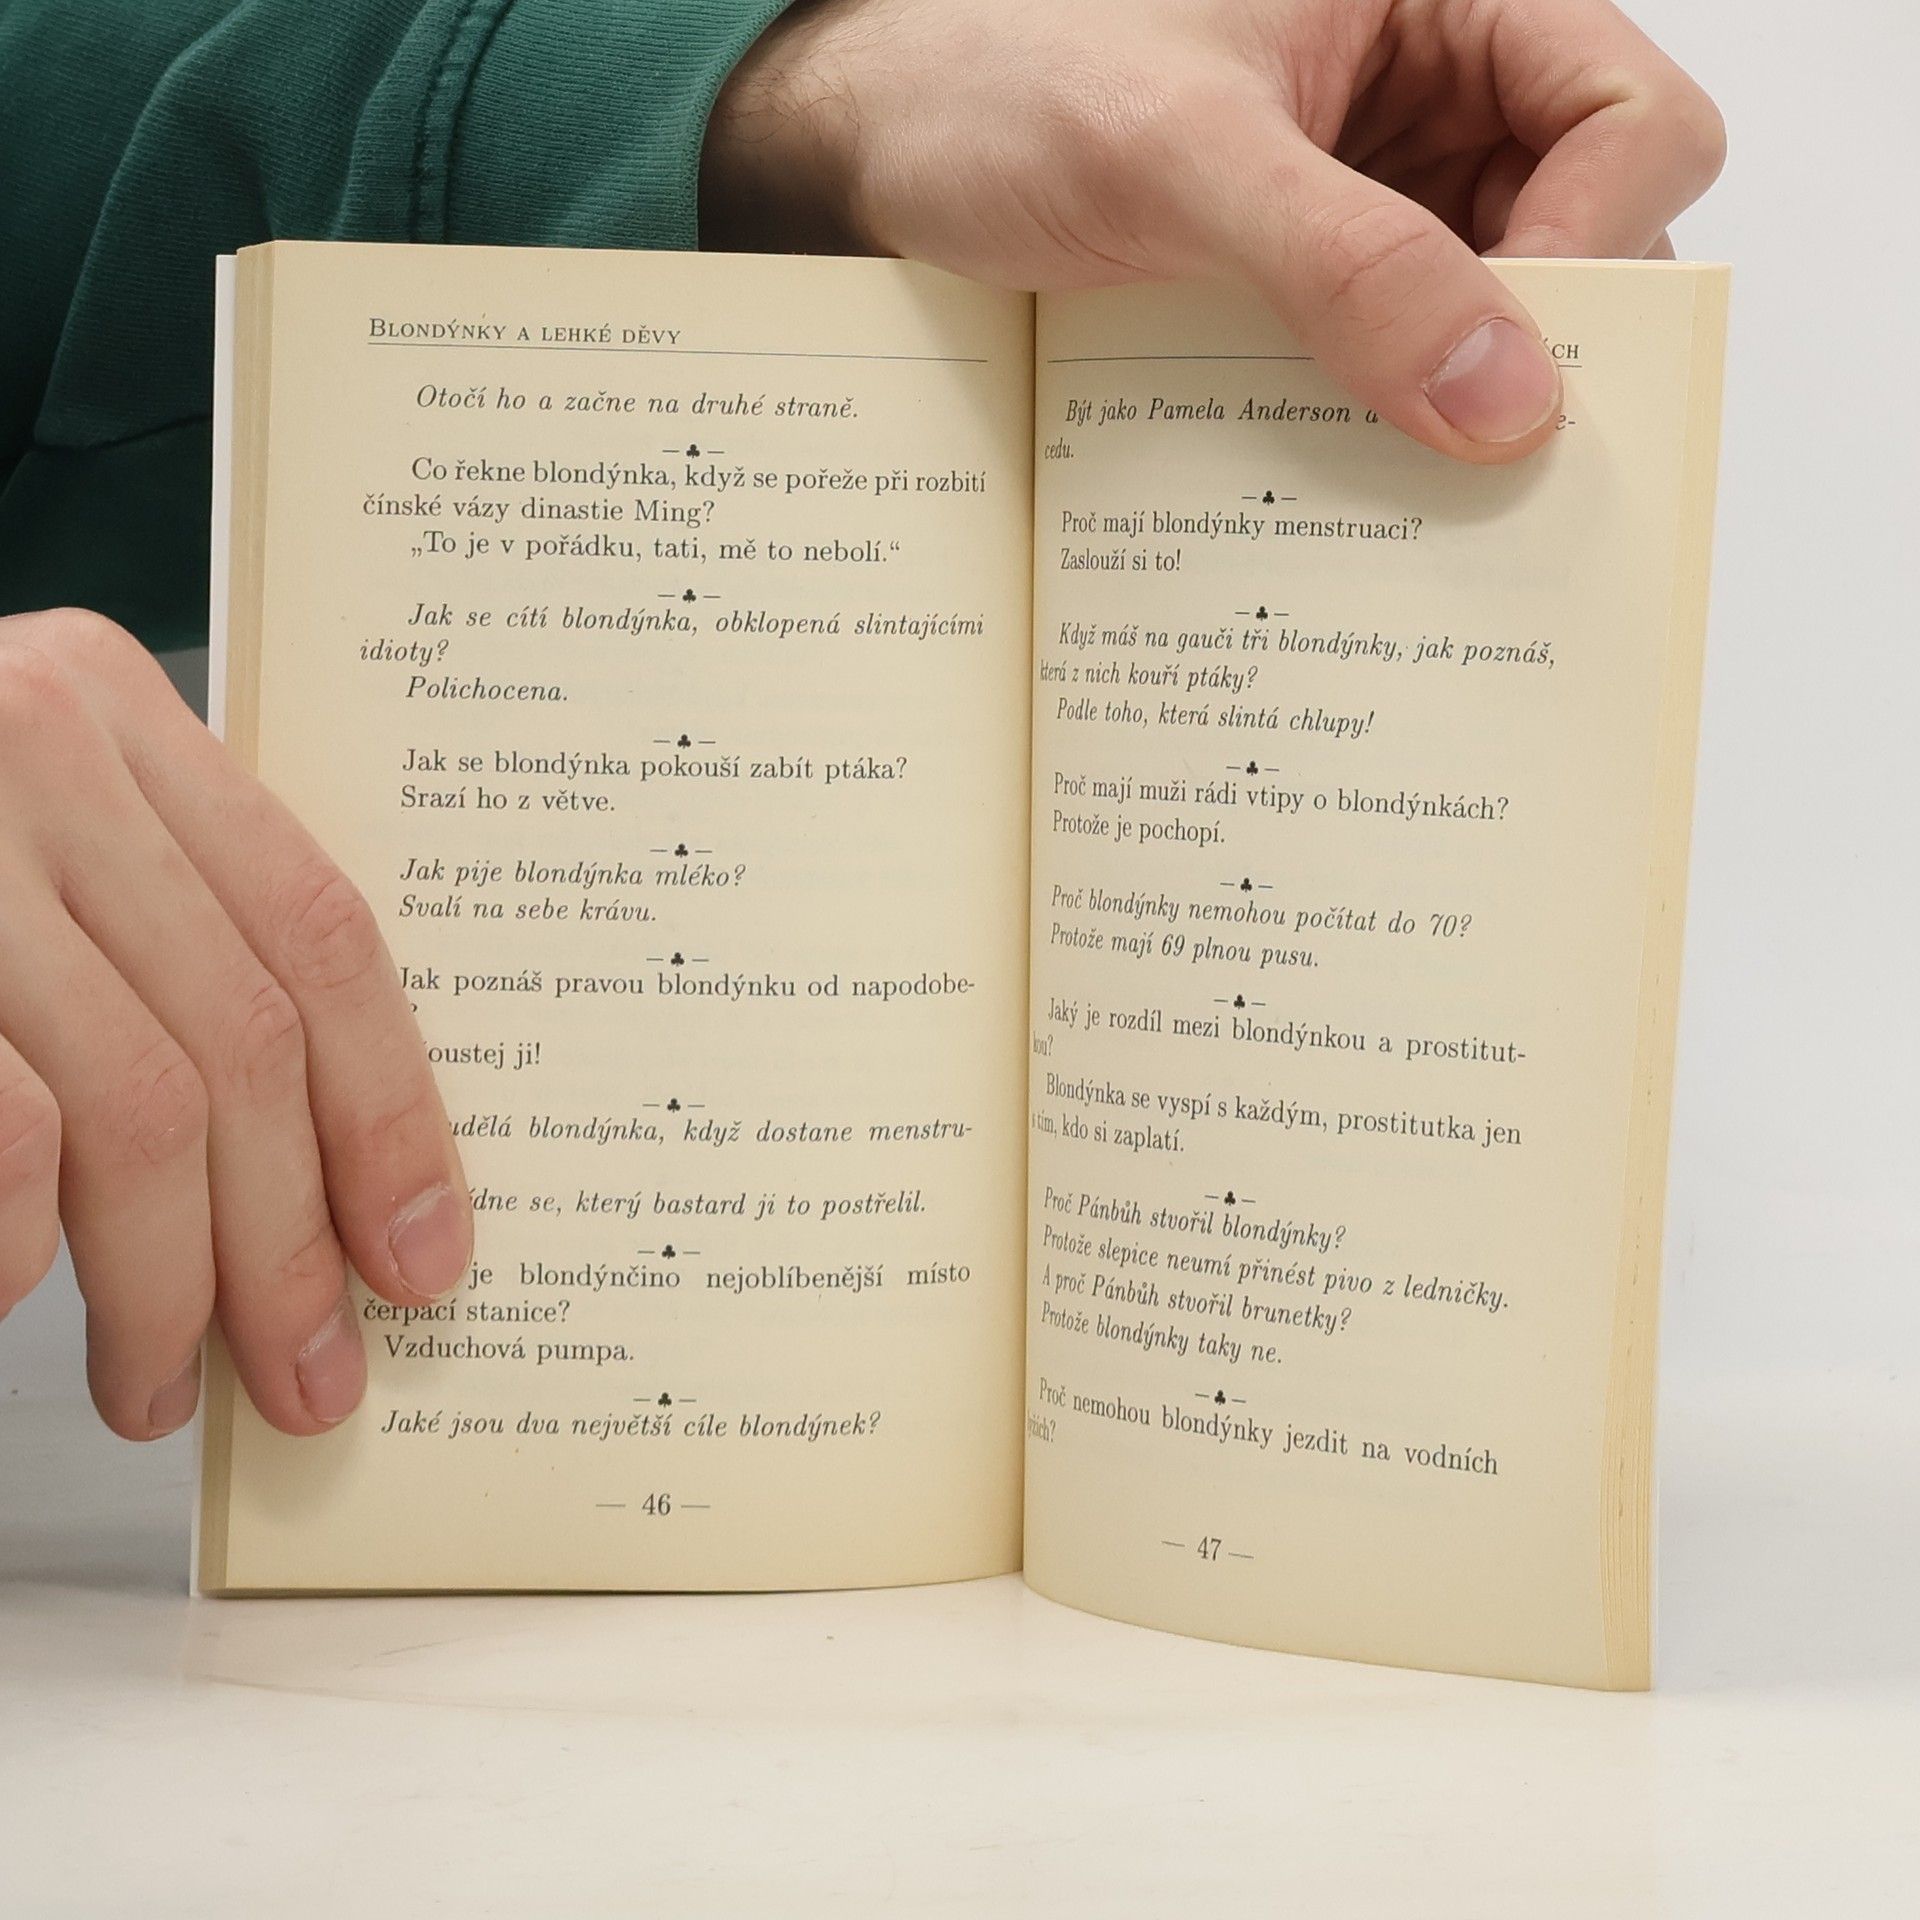 BLONDÝNKY A LEHKÉ DĚVY
Otočí ho a začne na druhé straně.
— ♣ —
Co řekne blondýnka, když se pořeže při rozbití
čínské vázy dinastie Ming?
„To je v pořádku, tati, mě to nebolí.“
— ♣ —
Jak se cítí blondýnka, obklopená slintajícími
idioty?
Polichocena.
— ♣ —
Jak se blondýnka pokouší zabít ptáka?
Srazí ho z větve.
— ♣ —
Jak pije blondýnka mléko?
Svalí na sebe krávu.
— ♣ —
Jak poznáš pravou blondýnku od napodobe-
?
ji!
— ♣ —
blondýnka, když dostane menstru-
se, který bastard ji to postřelil.
— ♣ —
je blondýnčino nejoblíbenější místo
čerpací stanice?
Vzduchová pumpa.
— ♣ —
Jaké jsou dva největší cíle blondýnek?
— 46 —
Být jako Pamela Anderson
cedu.
— ♣ —
Proč mají blondýnky menstruaci?
Zaslouží si to!
— ♣ —
Když máš na gauči tři blondýnky, jak poznáš,
která z nich kouří ptáky?
Podle toho, která slintá chlupy!
— ♣ —
Proč mají muži rádi vtipy o blondýnkách?
Protože je pochopí.
— ♣ —
Proč blondýnky nemohou počítat do 70?
Protože mají 69 plnou pusu.
— ♣ —
Jaký je rozdíl mezi blondýnkou a prostitut-
kou?
Blondýnka se vyspí s každým, prostitutka jen
s tím, kdo si zaplatí.
— ♣ —
Proč Pánbůh stvořil blondýnky?
Protože slepice neumí přinést pivo z ledničky.
A proč Pánbůh stvořil brunetky?
Protože blondýnky taky ne.
— ♣ —
Proč nemohou blondýnky jezdit na vodních
lyžích?
— 47 —